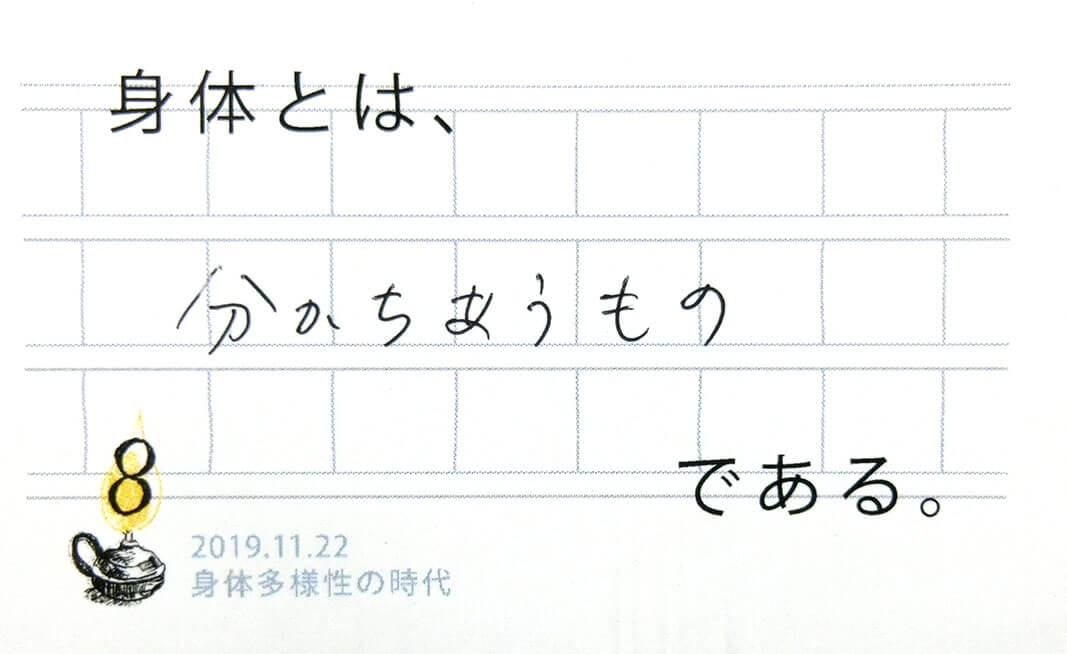 身体とは、
分かちあうもの
である。
8
2019.11.22
身体多様性の時代